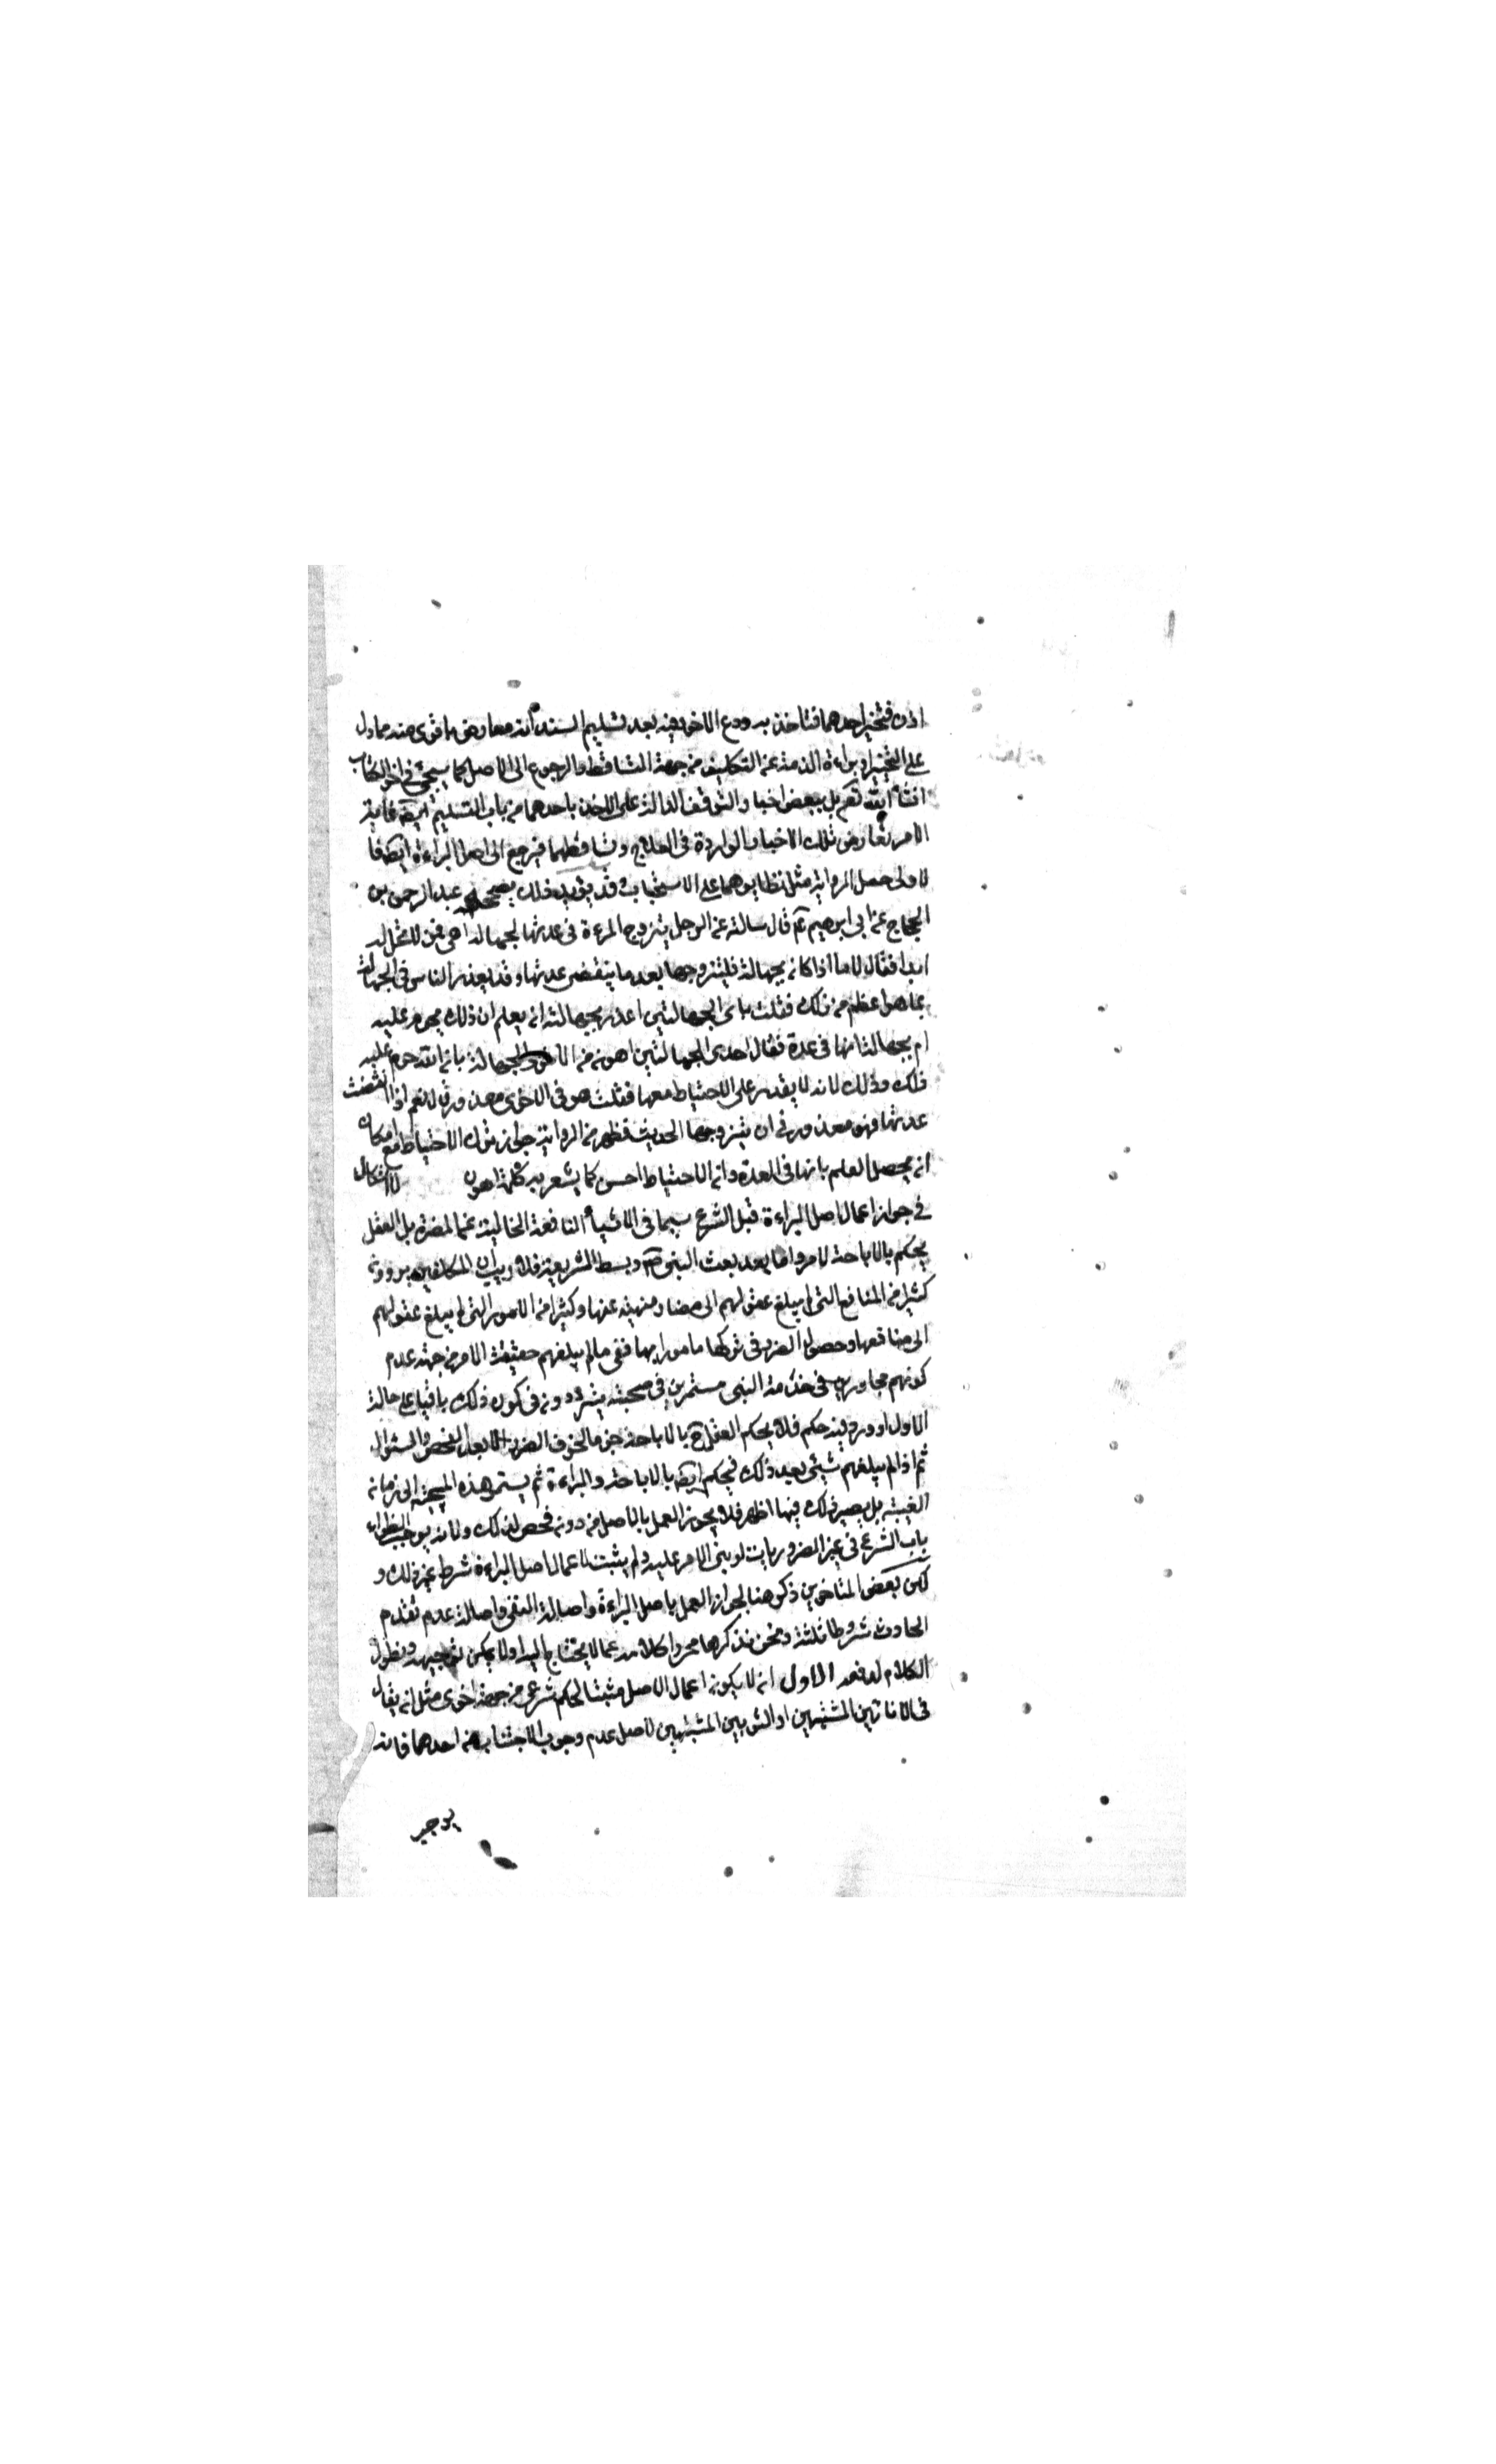 اذن فتخير احدهما فتاخذ به ودع الاخر وفيه بعد تسليم السند انه معارض باقوى منه مما دل
على التخيير او براءة الذمة عن التكليف من جهة التساقط والرجوع الى الاصل كما سيجئ في اخر الكتاب
انشأ الله تعم بل ببعض اخبار التوقف الدالة على الاخذ باحدهما من باب التسليم ايضا غاية
الامر تعارض تلك الاخبار الواردة في العلاج وتساقطهما فيرجع الى اصل البراءة ايضا فا
لاولى حمل الرواية مثل نظايرهما على الاستحباب وقد يؤيد ذلك بصحيحة عبد الرحمن بن
الحجاج عن ابى ابرهيم ع قال سالته عن الرجل يتزوج المرءة في عدتها بجهالة اهى ممن لا تحل له
ابدا فقال لا اما اذا كان بجهالة فليتزوجها بعد ما ينقضى عدتها وقد يعذر الناس في الجهالة
بما هو اعظم من ذلك فقلت باى الجهالتين اعذر بجهالته ان يعلم ان ذلك يحرم عليه
ام بجهالته انها في عدة فقال احدى الجهالتين اهون من الاخرى الجهالة بان الله حرم عليه
ذلك وذلك لانه لا يقدر على الاحتياط معها فقلت هو في الاخرى معذور قال نعم اذا انقضت
عدتها فهو معذور في ان يتزوجها الحديث فظهر من الرواية جواز ترك الاحتياط مع امكان
ان يحصل العلم بانها في العدة وان الاحتياط احسن كما يشعر به كلمة اهون لا اشكال
في جواز اعمال اصل البراءة قبل الشرع سيما في الاشيأ النافعة الخالية عن المضرة بل العقل
يحكم بالاباحة لا مر واما بعد بعث النبى ص وبسط الشريعة فلا ريب ان المكلفين يرون
كثيرا من المنافع التى لم يبلغ عقولهم الى مضارها منهية عنها وكثيرا من الامور التى لم يبلغ عقولهم
الى منافعها وحصول الضرر في تركها مامورا بها ففى ما لم يبلغهم حقيقة الامر من جهة عدم
كونهم مجاورين في خدمة النبى مستمرين في صحبته يترددون في كون ذلك باقيا على حالة
الاول او ورد فيه حكم فلا يحكم العقل ح بالاباحة جزما لخوف الضرر الا بعد الفحص والسؤال
ثم اذا لم يبلغهم شيئى بعد ذلك فيحكم ايضا بالاباحة والبراءة ثم يستمر هذه السجية الى زمان
الغيبة بل يصير ذلك فيها اظهر فلا يجوز العمل بالاصل من دون فحص لذلك ولانه يوجب
باب الشرع في غير الضروريات لو بنى الامر عليه ولم يثبت لاعمال اصل البراءة شرط غير ذلك و
لكن بعض المتاخرين ذكر هنا لجواز العمل باصل البراءة واصالة النفى واصالة عدم تقدم
الحادث شروطا ثلثة ونحن نذكرها محررا كلامه عما لا يحتاج اليه او لا يمكن توجيهه ونطول
الكلام لدفعه الاول ان لا يكون اعمال الاصل مثبتا لحكم شرعى من جهة اخرى مثل ان يقال
في الانائين المشتبهين او الثوبين المشتبهين الاصل عدم وجوب الاجتناب من احدهما فانه
يوجب